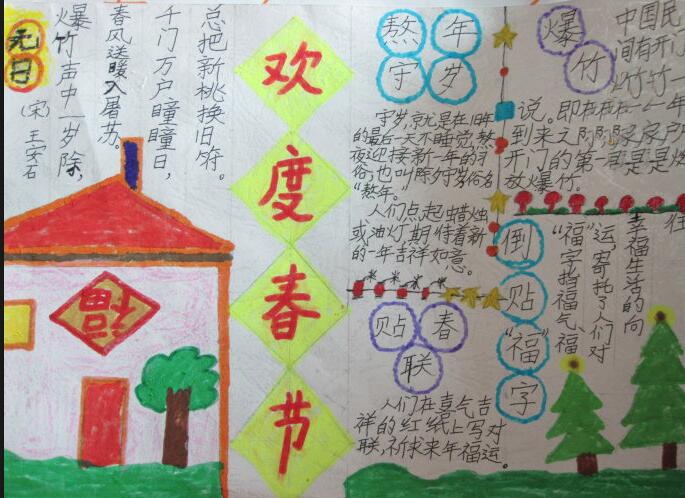 元日
(宋)
王安石
爆竹声中一岁除,
春风送暖入屠苏。
千门万户瞳瞳日,
总把新桃换旧符。
福
欢度春节
熬年
守岁
守岁,就是在旧年
的最后一天不睡觉,熬
夜迎接新一年的习
俗,也叫除夕守岁,俗名
"熬年。"
人们点起蜡烛
或油灯,期待着新
的一年吉祥如意。
贴春
联
人们在喜气吉
祥的红纸上写对
联,祈求来年福运。
爆
竹
中国民
间有开门
竹一
说。即在一年
到来之际,家
开门的第一是燃
放爆竹。
倒贴"福"字
"福"字指福气、福
运,寄托了人们对
幸福生活的向
往